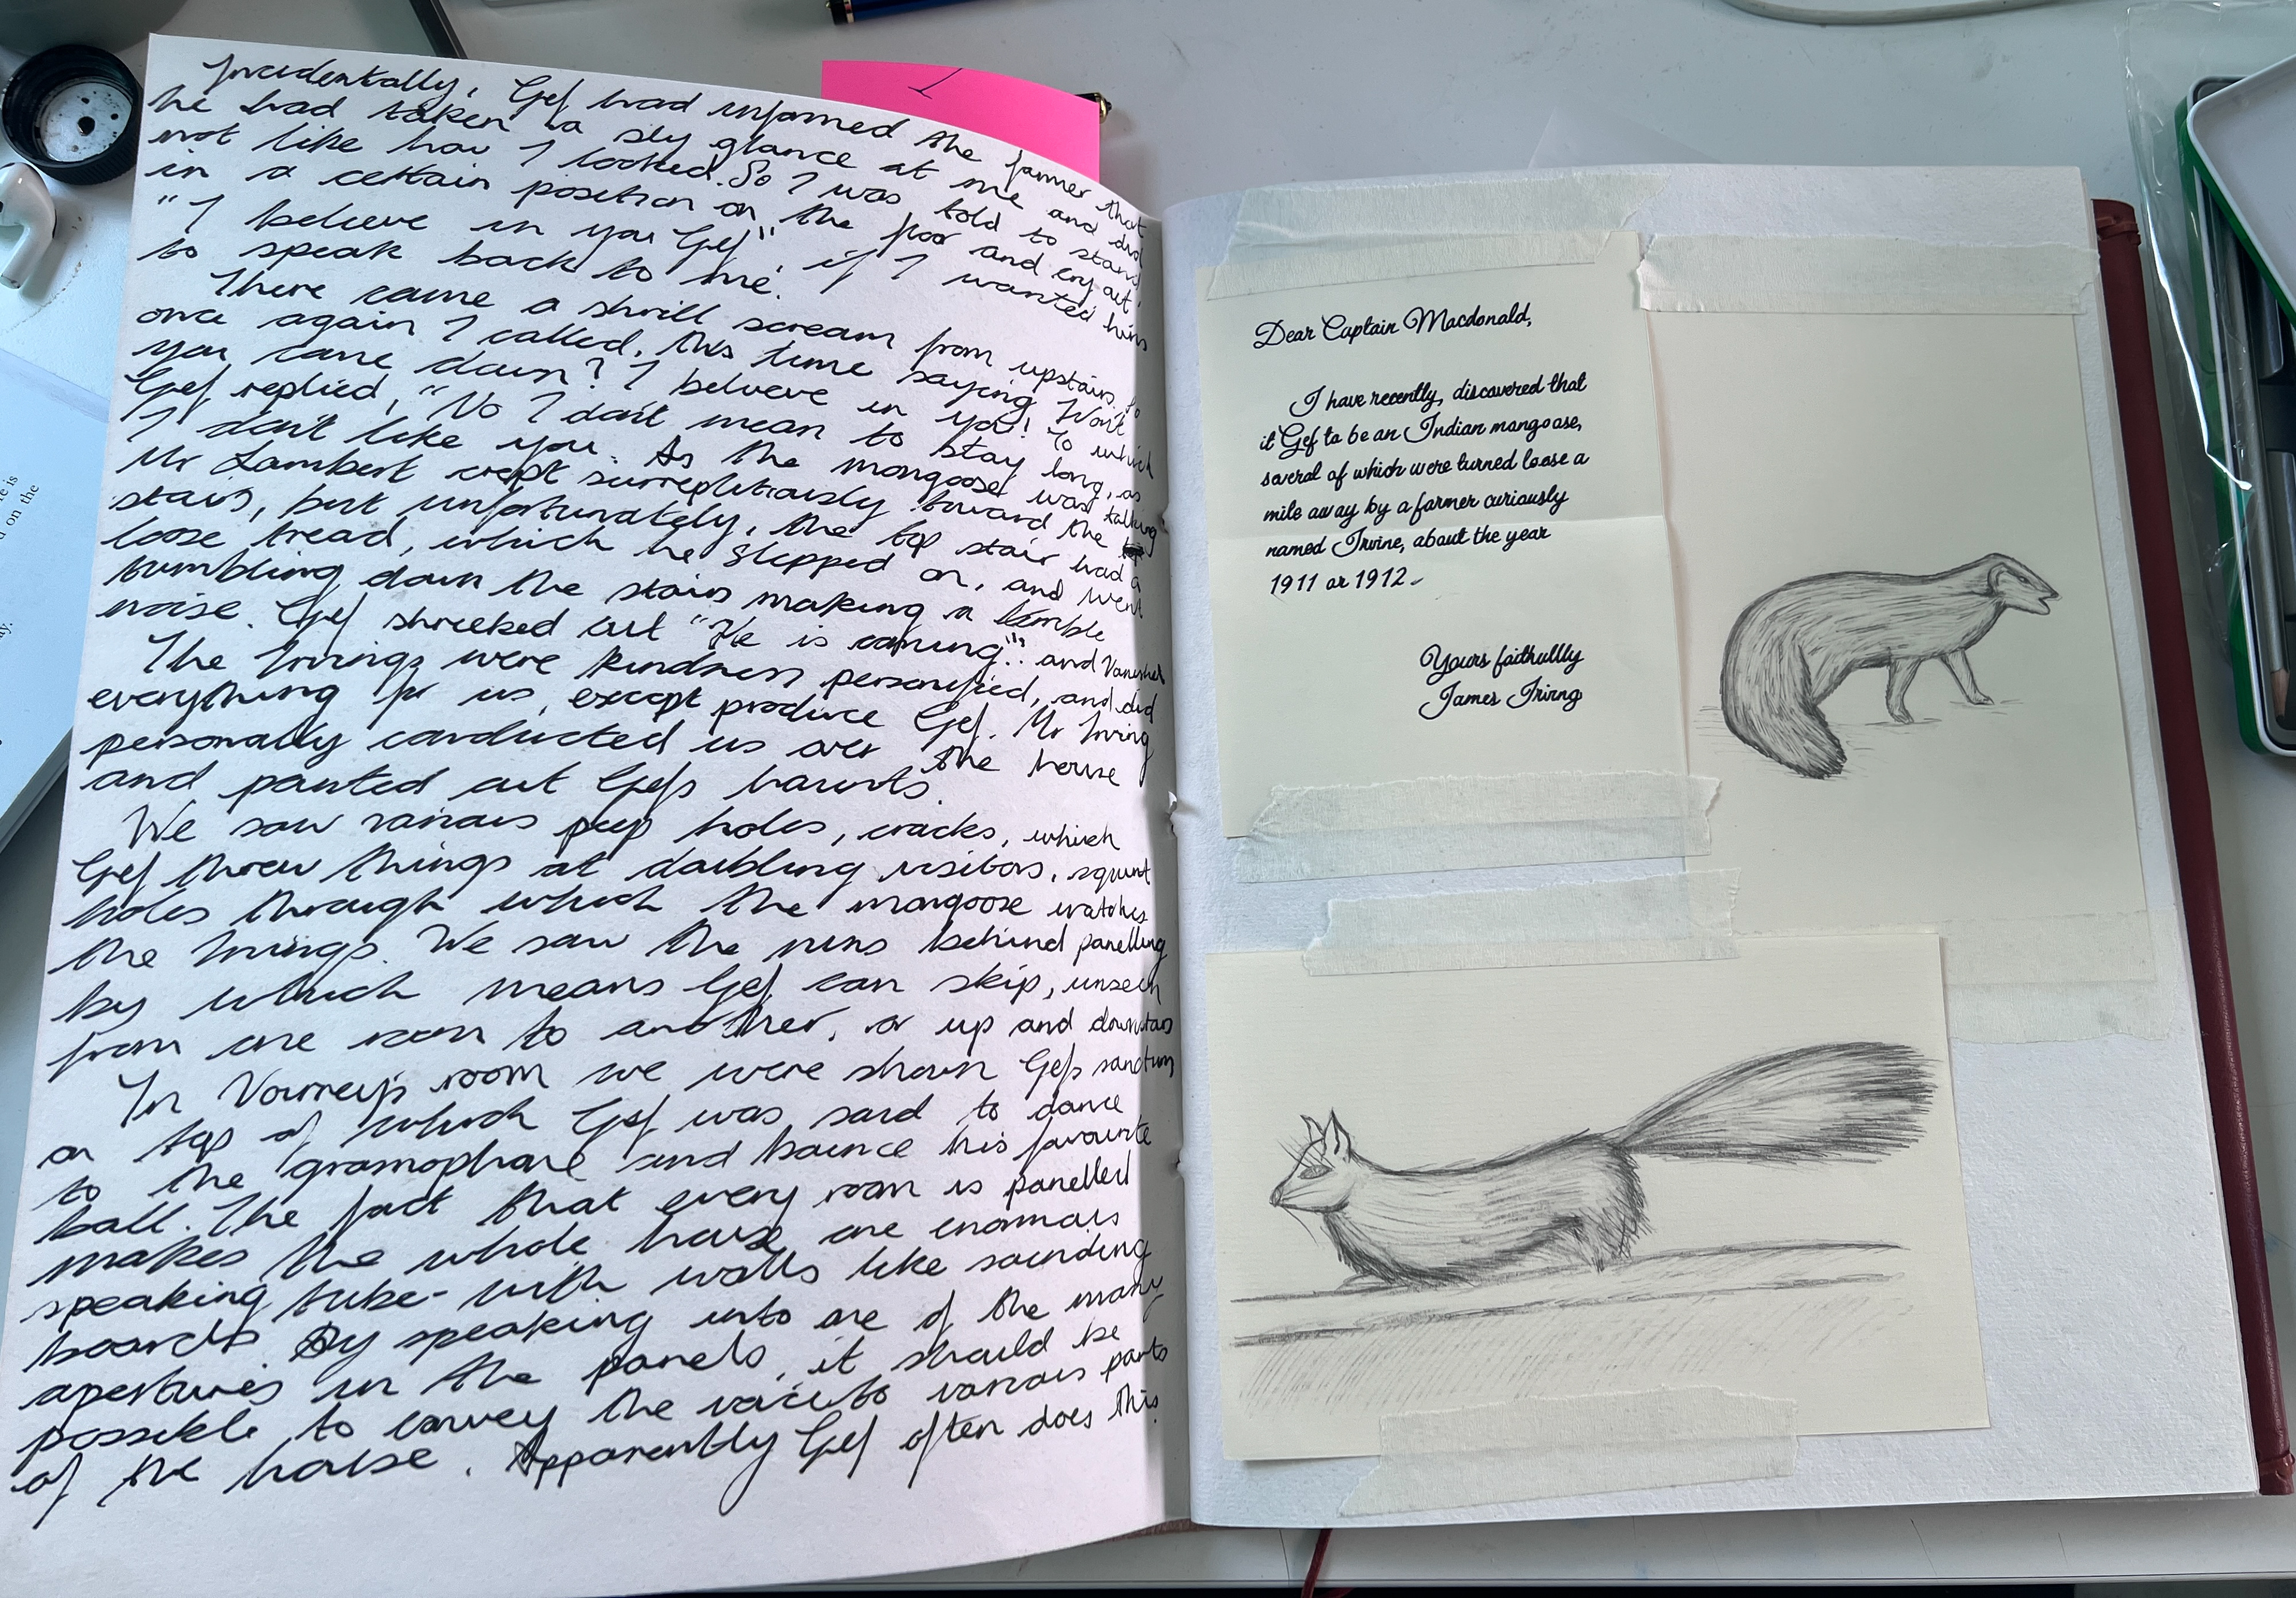 Incidentally, Gef had informed the farmer that
he had taken a sly glance at me and did
not like how I looked. So I was told to stand
in a certain position on the floor and cry out,
"I believe in you Gef" if I wanted him
to speak back to me.
There came a shrill scream from upstairs. So
once again I called, this time saying Won't
you come down? I believe in you! To which
Gef replied, "No I don't mean to stay long, as
I don't like you. As the mongoose was talking
Mr Lambert crept surreptitiously toward the
stairs, but unfortunately, the top stair had a
loose tread, which he slepped on, and went
tumbling down the stairs making a terrible
noise. Gef shreeked out "He is coming!" and vanished
The Irvings were kindness personified, and did
everything for us, except produce Gef. Mr Irving
personally conducted us over the house
and pointed out Gefs haunts.
We saw various peep holes, cracks, which
Gef threw things at doubling visitors, squint
holes through which the mongoose watches
the Irvings. We saw the runs behind panelling
by which means Gef can skip, unseen
from one room to another, or up and downstairs
In Vorreys room we were shown Gefs sanctum
on top of which Gef was said to dance
to the gramophone and bounce his favourite
ball. The fact that every room is panelled
makes the whole house one enormous
speaking tube- with walls like sounding
boards By speaking into one of the many
apertures in the panels, it should be
possible to convey the voice to various parts
of the house. Apparently Gef often does this.
Dear Captain Macdonald,
I have recently, discovered that
it Gef to be an Indian mongoose,
several of which were turned loose a
mile away by a farmer curiously
named Irvine, about the year
1911 or 1912.
Yours faithullly
James Irivng
is
on the